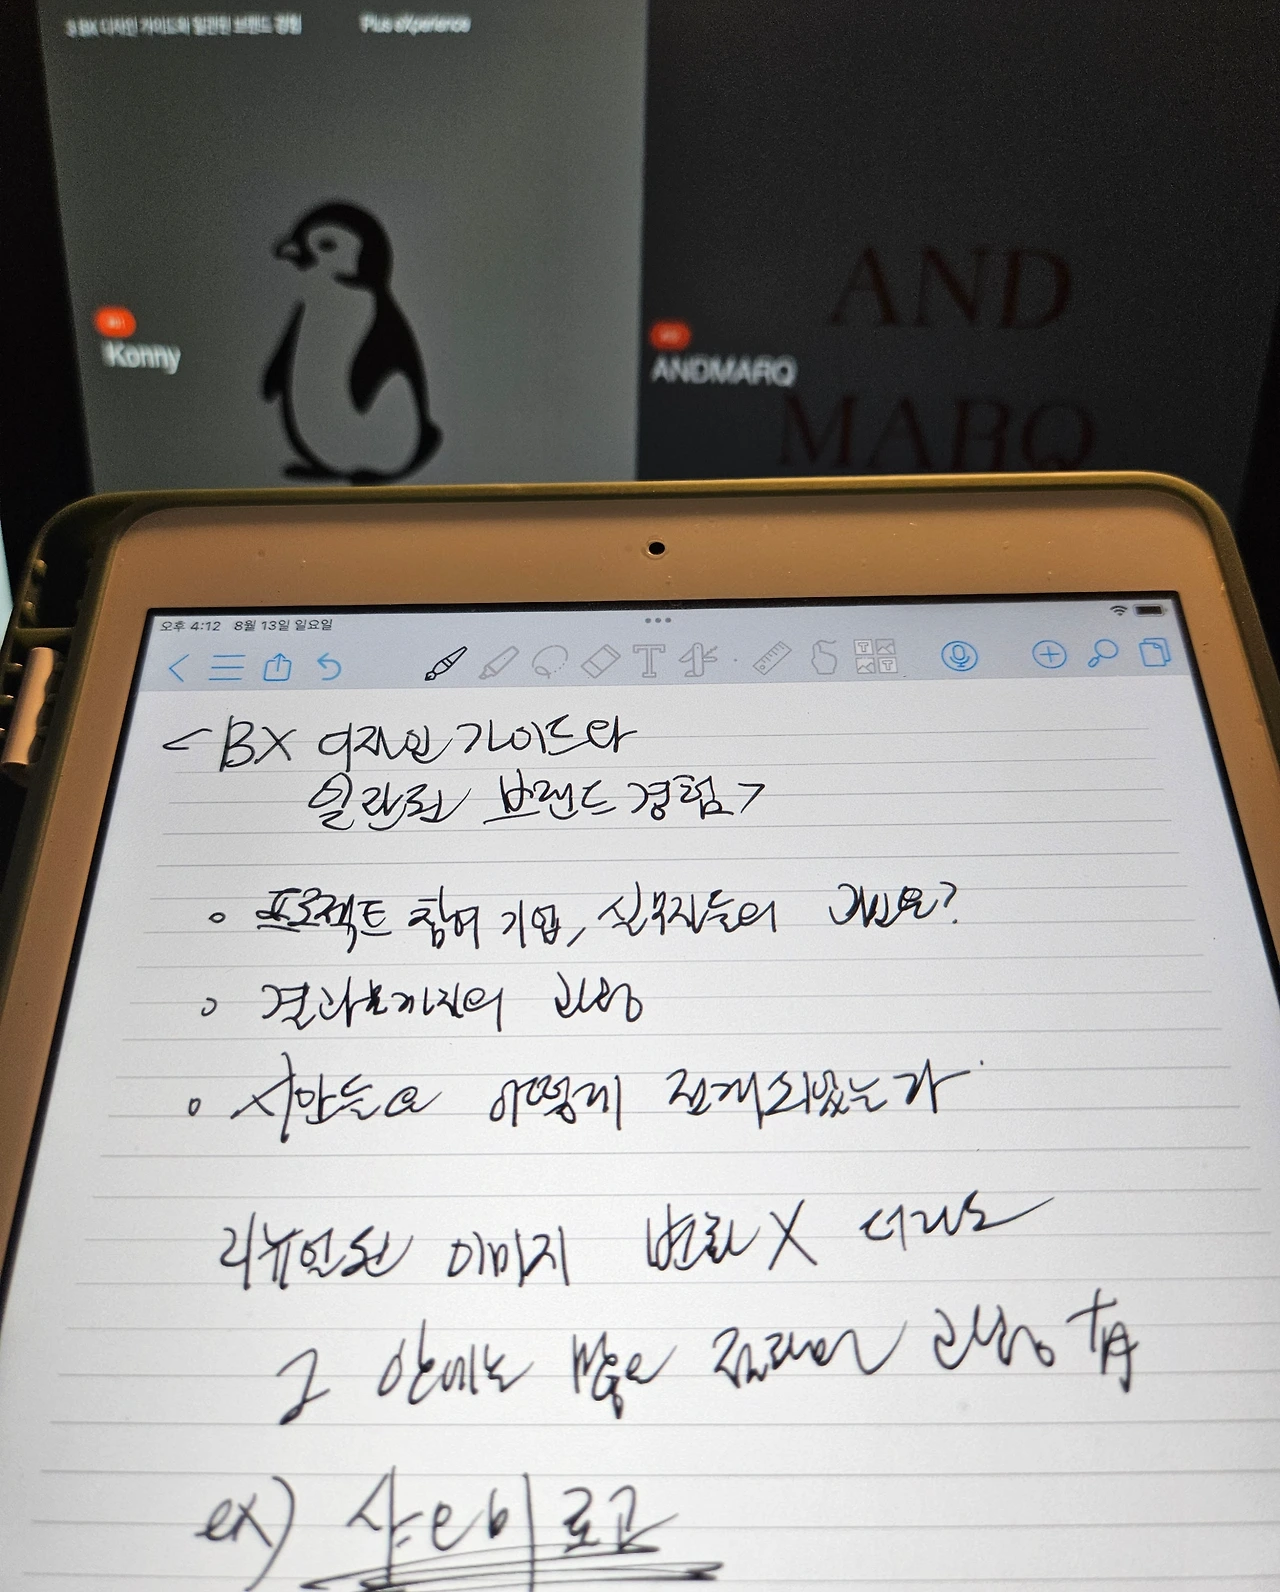 3 BX 디자인 가이드와 일관된 브랜드 경험
Plus eXperience
Konny
AND
MARQ
ANDMARQ
오후 4:12 8월 13일 일요일
<BX 디자인 가이드와
일관된 브랜드 경험>
○ 프로젝트 참여 기업, 실무자들의
○ 결과물까지의 과정
○ 시안들은 어떻게 전개되었는가
리뉴얼된 이미지 변화X 더라도
그 안에는 많은 과정 有
ex) 샤르비 로고